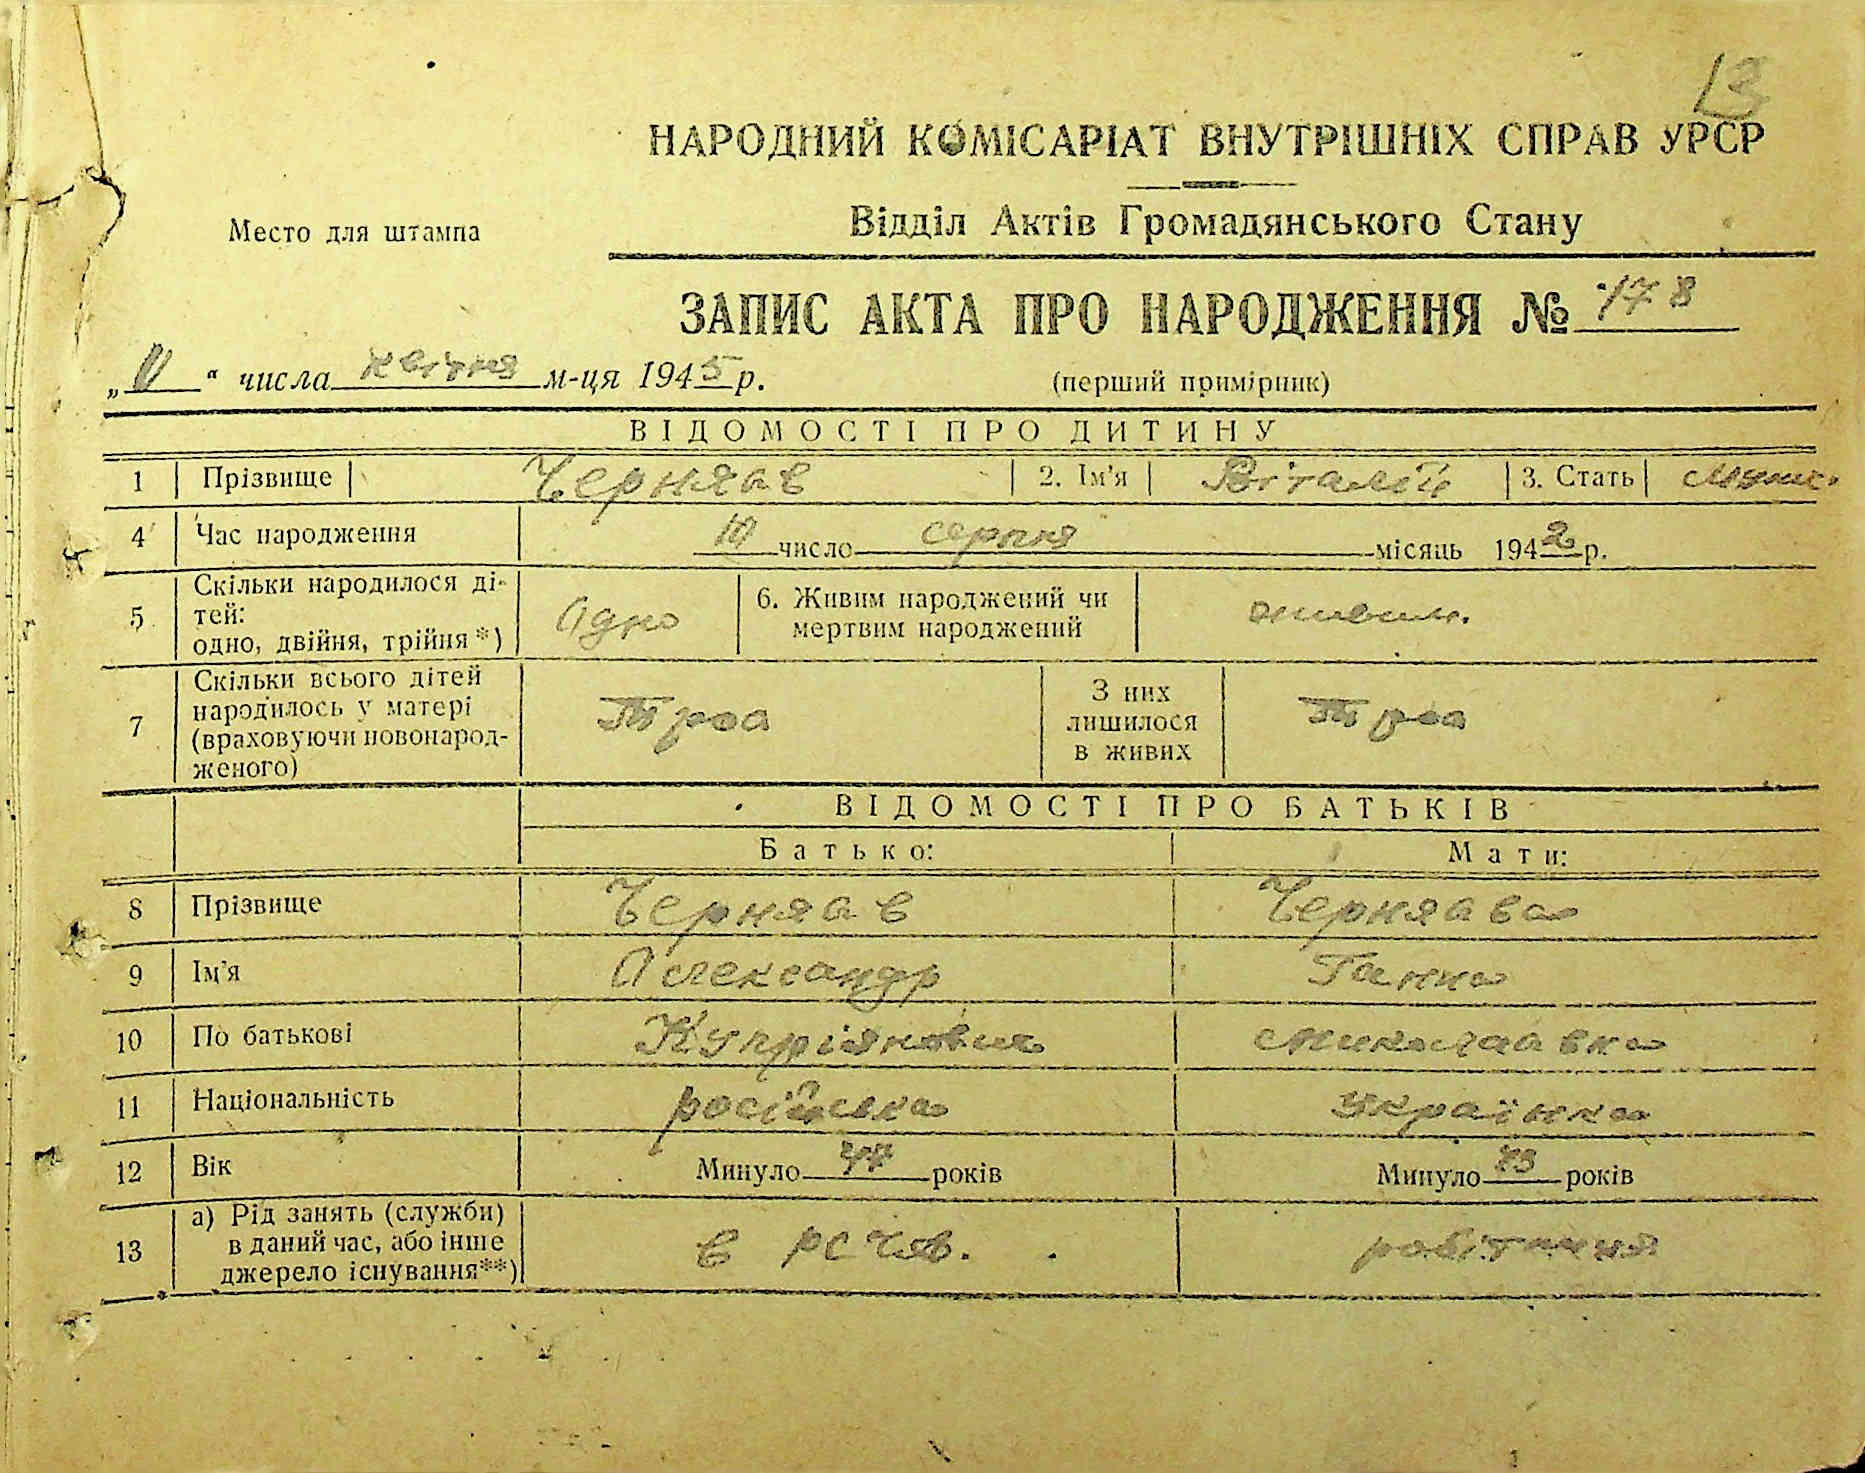 13
НАРОДНИЙ КОМІСАРІАТ ВНУТРІШНІХ СПРАВ УРСР
Место для штампа
Відділ Актів Громадянського Стану
ЗАПИС АКТА ПРО НАРОДЖЕННЯ № 178
„ “ числа квітня м-ця 1945 р.
(перший примірник)
ВІДОМОСТІ ПРО ДИТИНУ
1 Прізвище Черняав 2. Ім'я Віталій 3. Стать
4 Час народження 10 число серпня місяць 1942 р.
5 Скільки народилося ді-
тей:
одно, двійня, трійня *) Одно
6. Живим народжений чи
мертвим народжений живим.
7 Скільки всього дітей
народилось у матері
(враховуючи новонарод-
женого) Троа
З них
лишилося
в живих Троа
ВІДОМОСТІ ПРО БАТЬКІВ
Батько: Мати:
8 Прізвище Черняав Черняава
9 Ім'я Олександр Ганна
10 По батькові Купріянович Миколаавна
11 Національність російська українка
12 Вік Минуло 44 років Минуло років
13 а) Рід занять (служби)
в даний час, або інше
джерело існування**) в робітниця